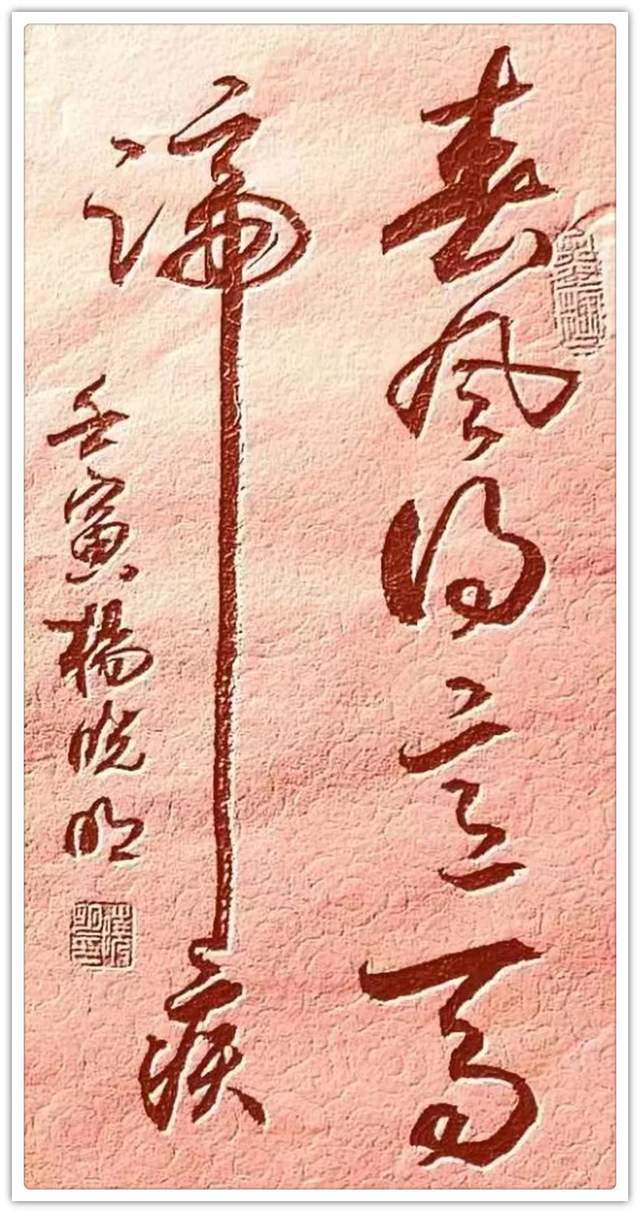 春风得意马
蹄疾
壬寅杨晓明